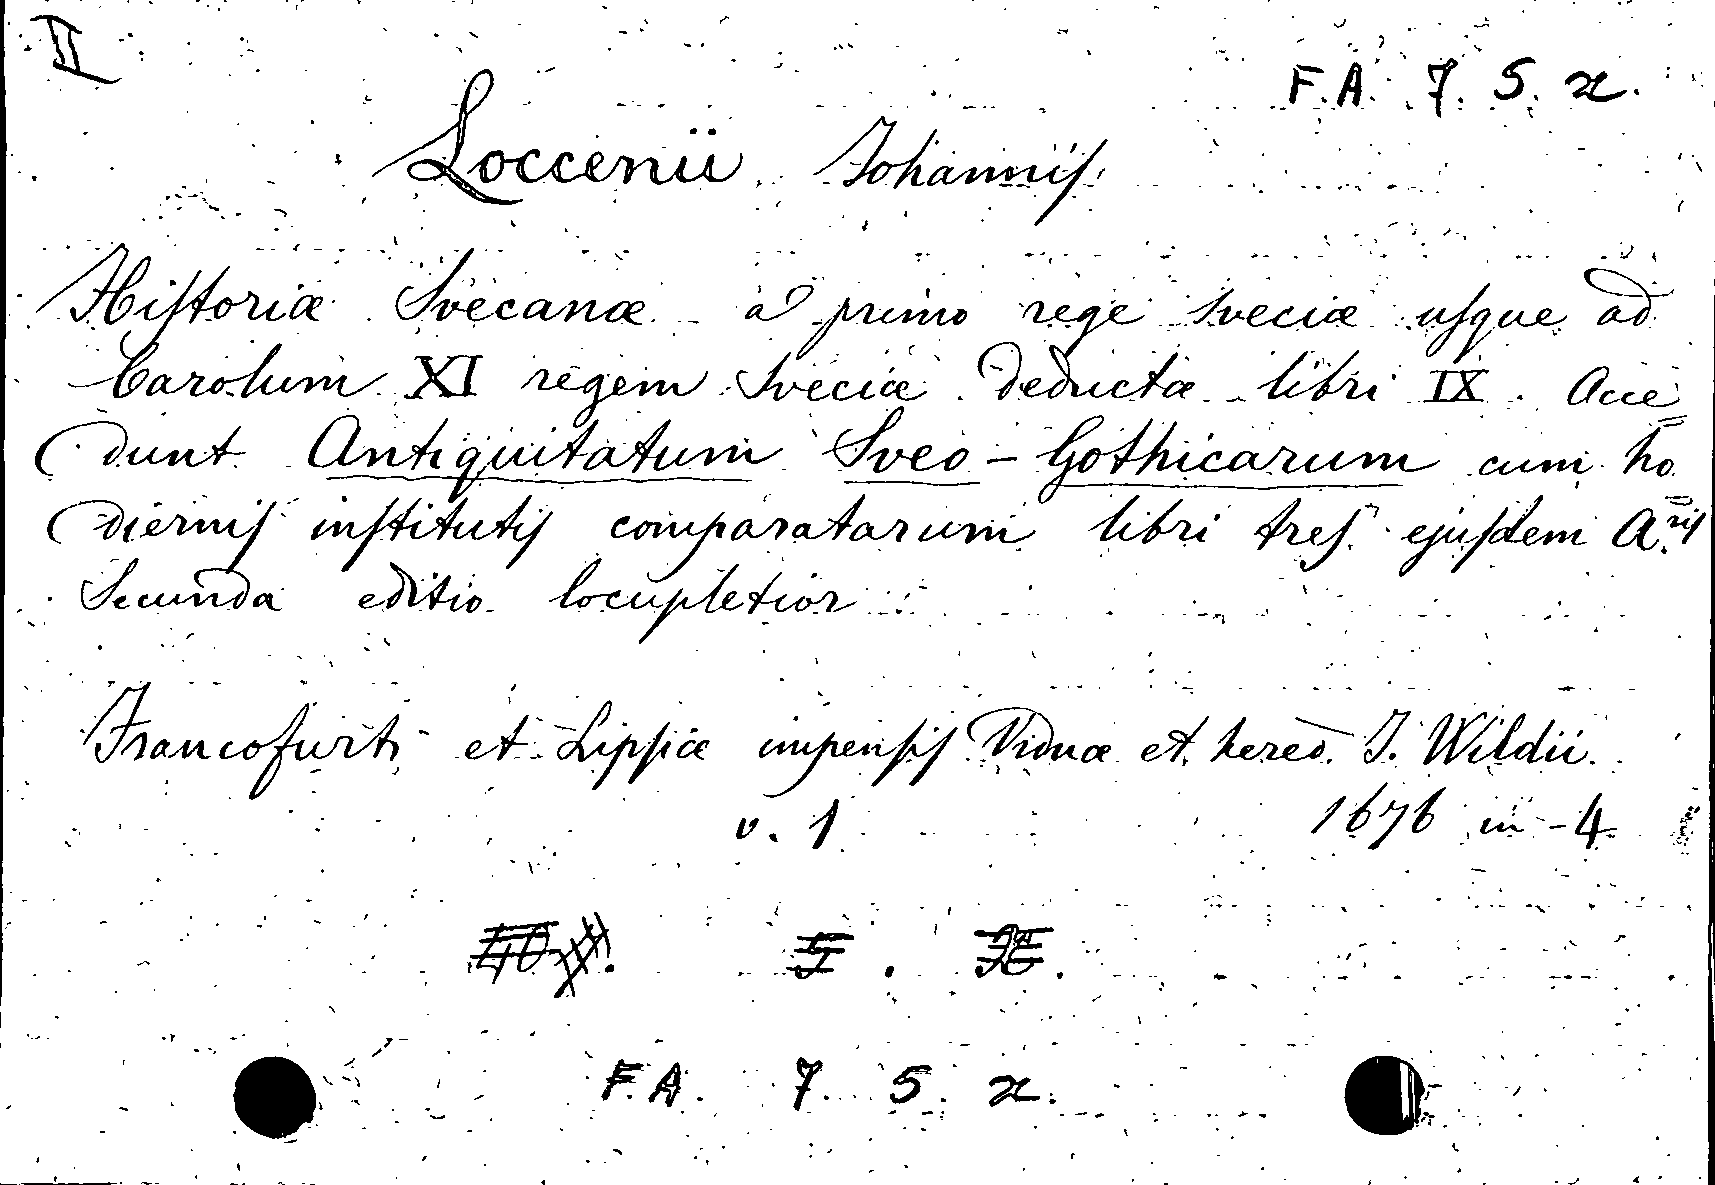 II
F.A. 7. 5. x.
Loccenii Johannis
Historiæ Svecanæ a primo rege Sveciæ usque ad
Carolum XI regem Sveciæ deductæ libri IX. Acce=
dunt Antiquitatum Sveo-Gothicarum cum ho=
diernis institutis comparatarum libri tres ejusdem A.ris
Secunda editio locupletior
Francofurti et Lipsiæ impensis Viduæ et hered. J. Wildii.
v. 1 1676 in-4
F.A. 7. 5. x.